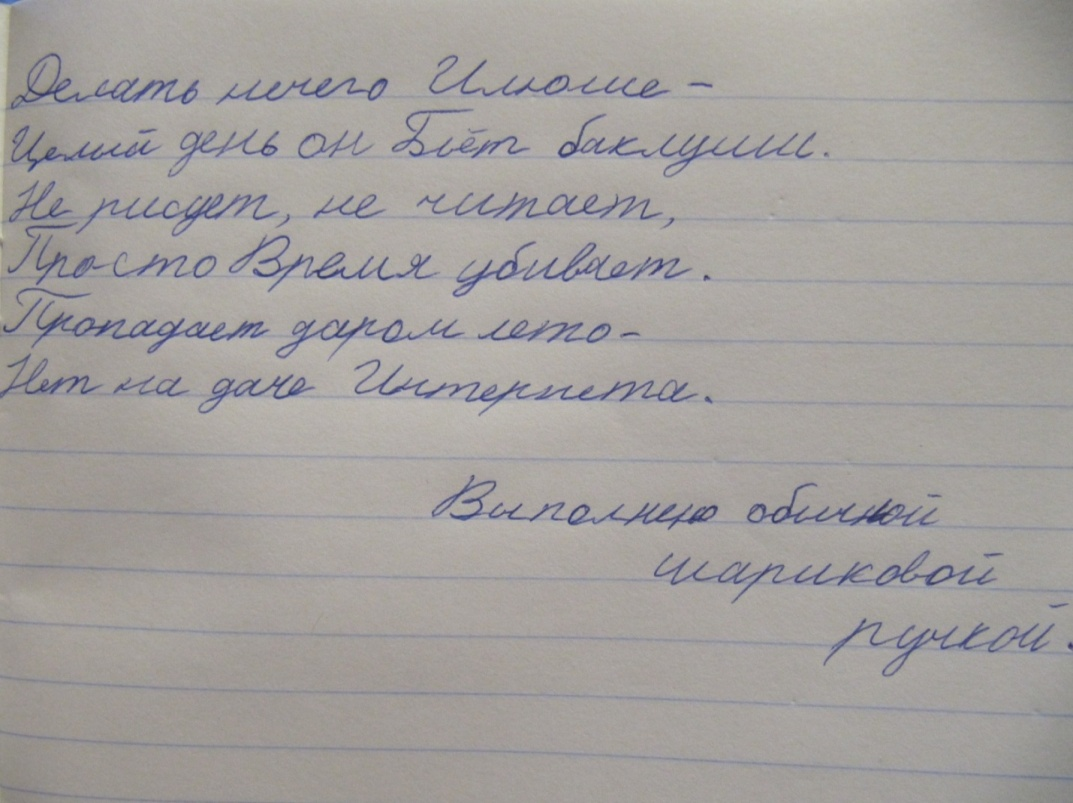 Делать нечего Илюше –
Целый день он Бьёт баклуши.
Не рисует, не читает,
Просто Время убивает.
Пропадает даром лето –
Нет на даче Интернета.
Выполнено обычной
шариковой
ручкой.